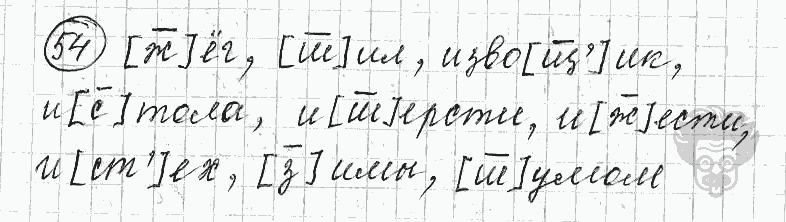 54 [ж̅]ёг, [ш̅]ил, изво[щ̅’]ик,
и[с̅]тола, и[ш̅]ерсти, и[ж̅]ести,
и[ст’]ех, [з̅]имы, [ш̅]умом